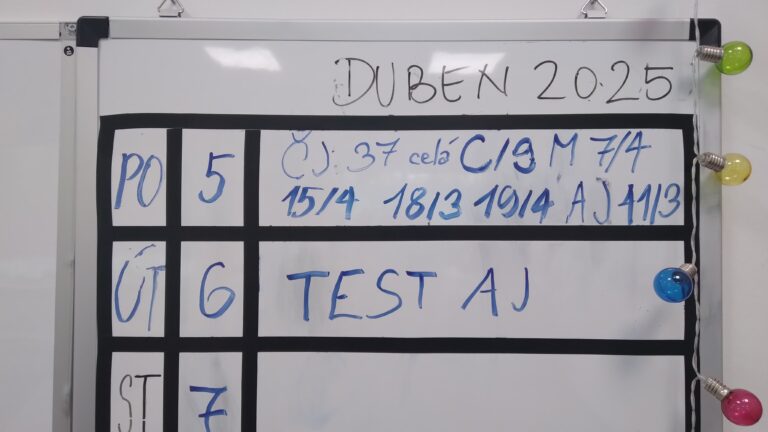 DUBEN 2025
PO 5 ČJ: 37 celá C/9 M 7/4
15/4 18/3 19/4 AJ 11/3
ÚT 6 TEST AJ
ST 7